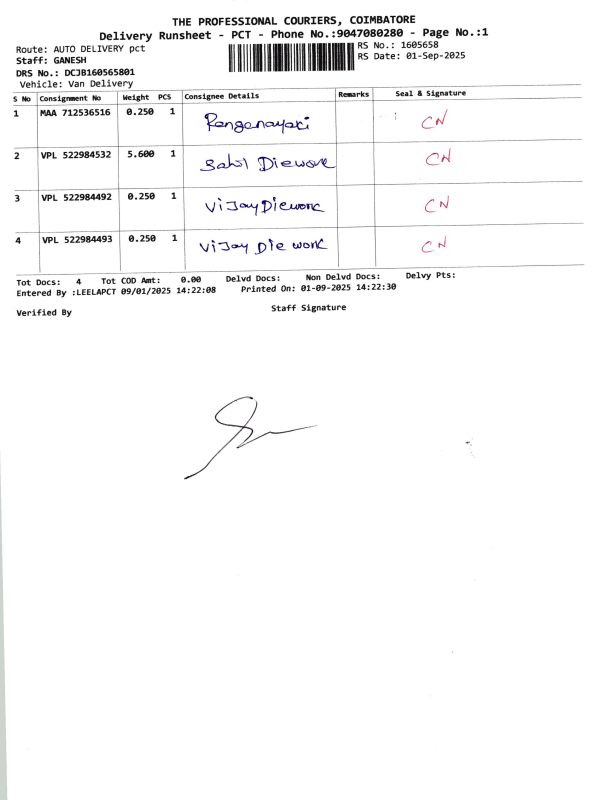 THE PROFESSIONAL COURIERS, COIMBATORE
Delivery Runsheet - PCT - Phone No.:9047080280 - Page No.:1
Route: AUTO DELIVERY pct
RS No.: 1605658
Staff: GANESH
RS Date: 01-Sep-2025
DRS No.: DCJB160565801
Vehicle: Van Delivery
S No Consignment No Weight PCS Consignee Details Remarks Seal & Signature
1 MAA 712536516 0.250 1 Ranganayaki CN
2 VPL 522984532 5.600 1 Sahil Diework CN
3 VPL 522984492 0.250 1 Vijay Diework CN
4 VPL 522984493 0.250 1 Vijay Die work CN
Tot Docs: 4 Tot COD Amt: 0.00 Delvd Docs: Non Delvd Docs: Delvy Pts:
Entered By :LEELAPCT 09/01/2025 14:22:08 Printed On: 01-09-2025 14:22:30
Verified By Staff Signature